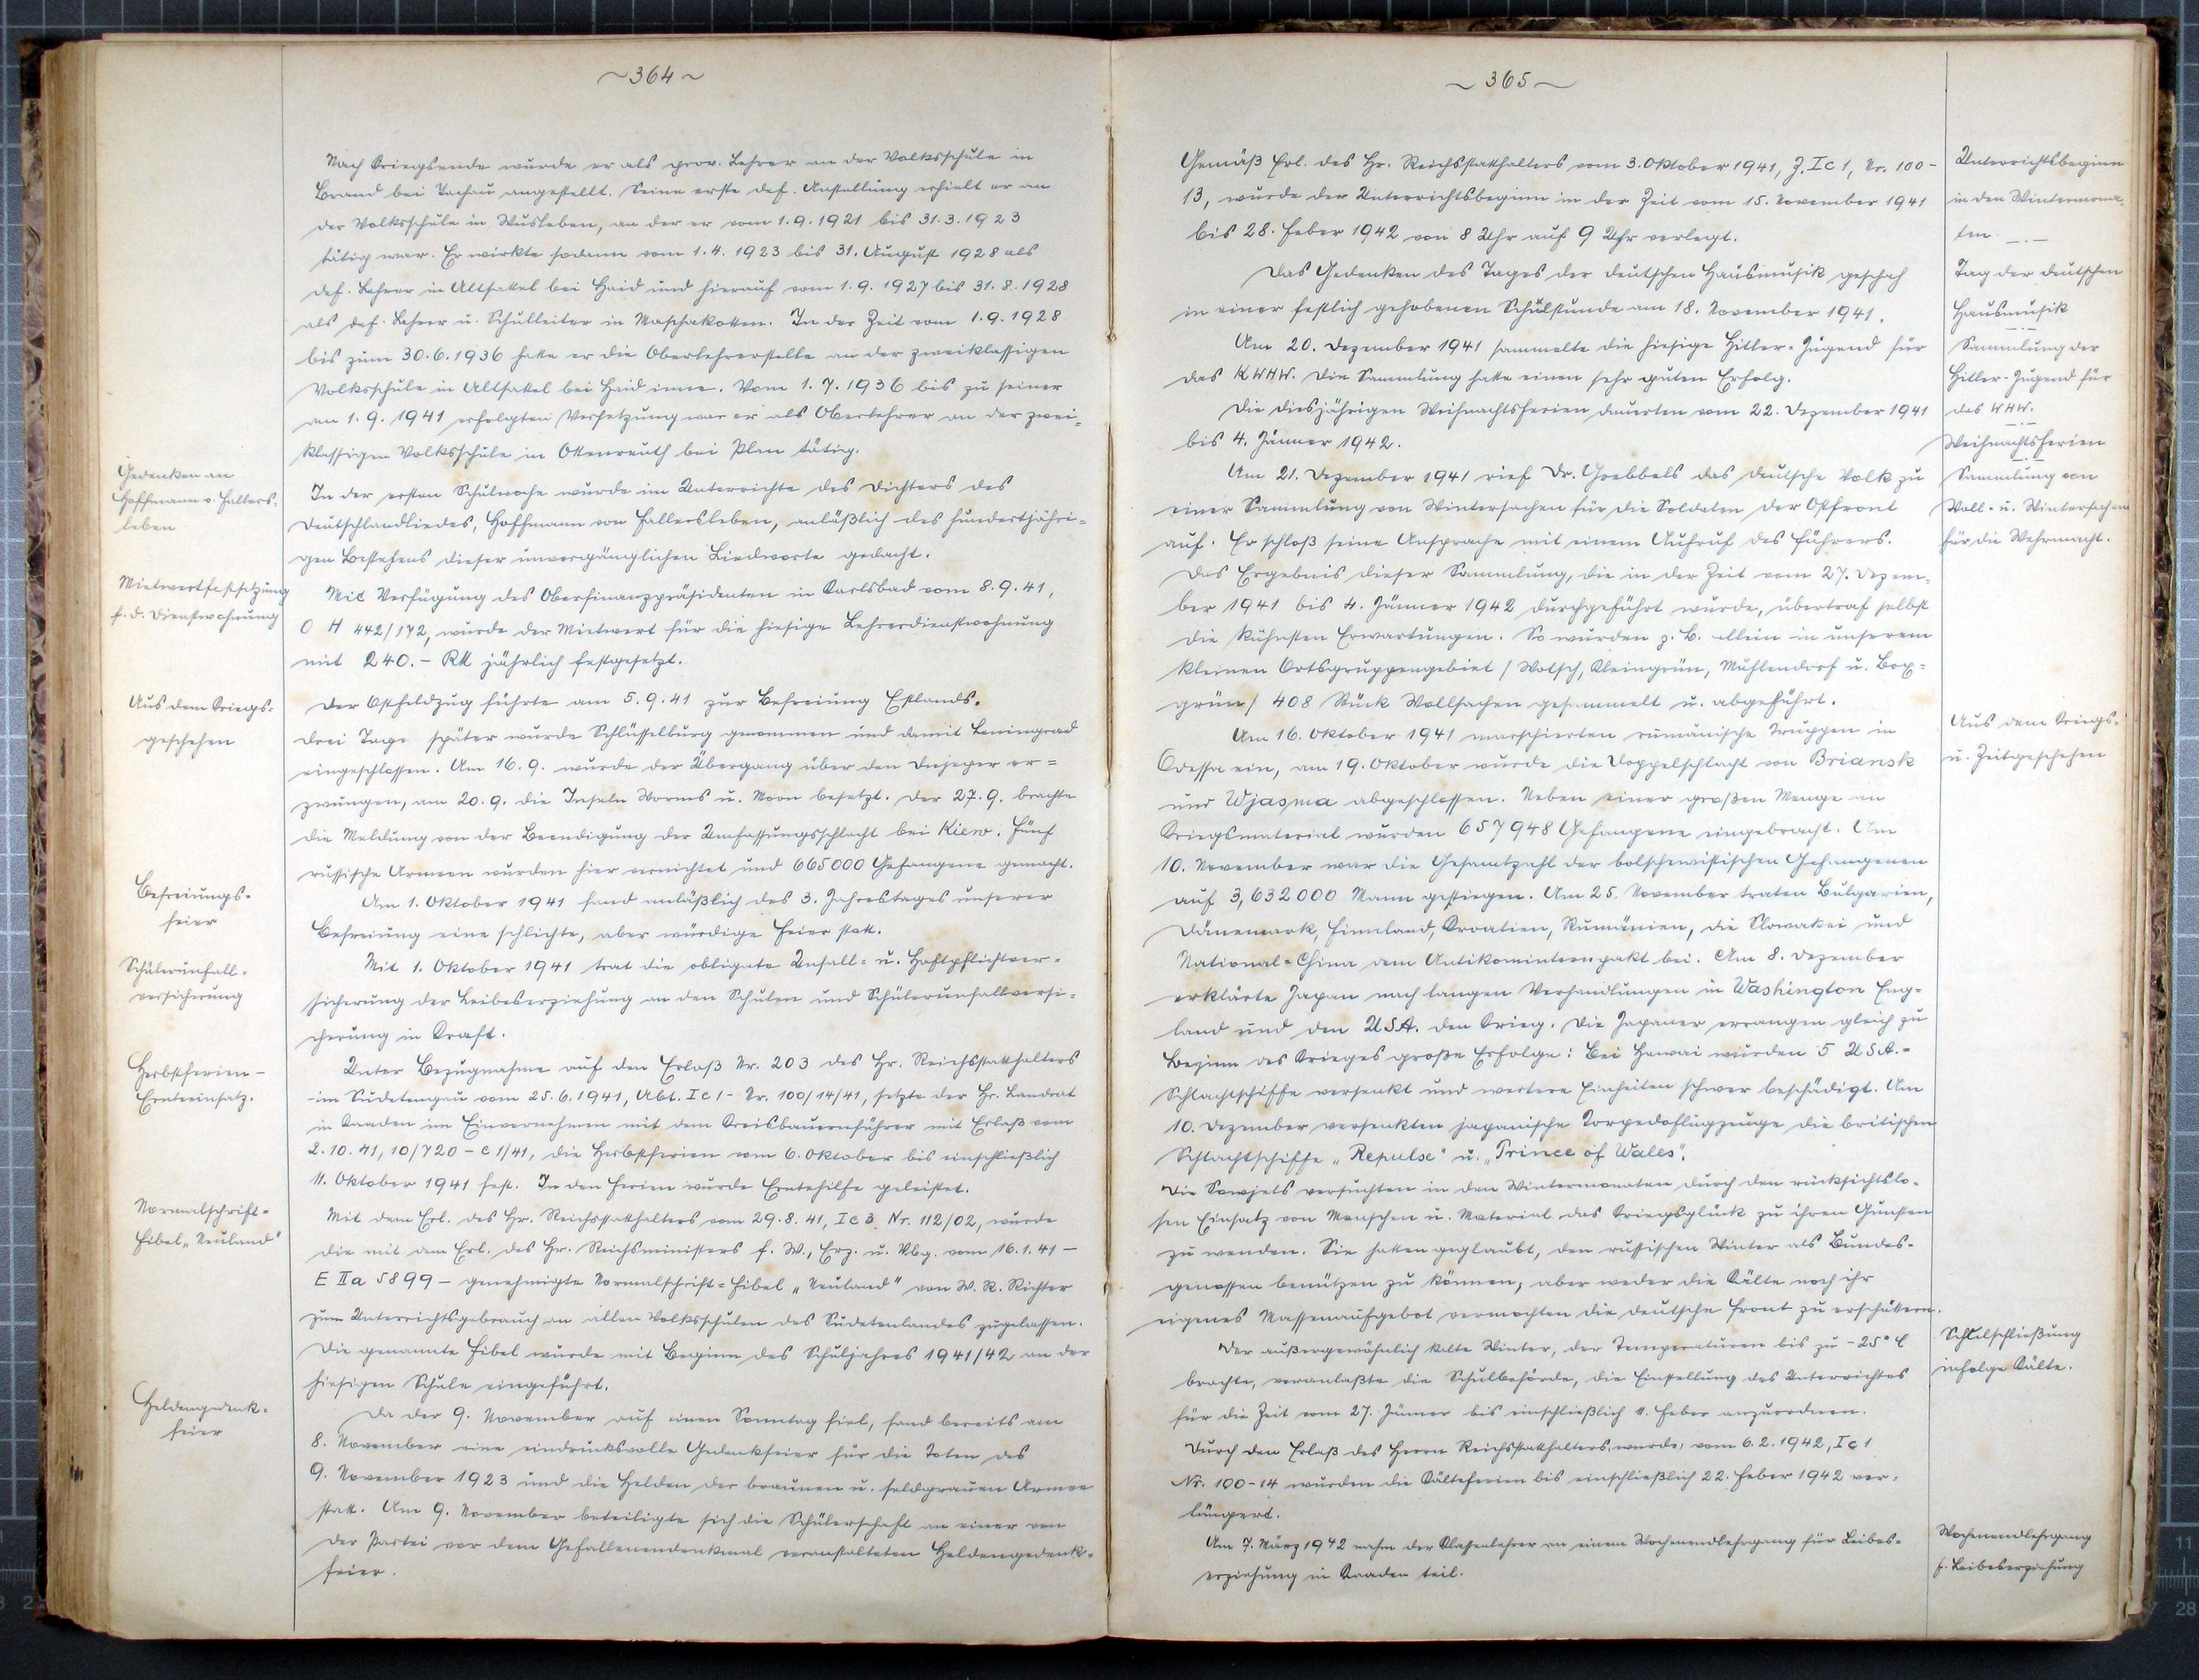 ~364~
Nach Kriegsende wurde er als prov. Lehrer an der Volksschule in
Brand bei Tachau angestellt. Seine erste def. Anstellung erhielt er an
der Volksschule in Wusleben, an der er vom 1.9.1921 bis 31.3.1923
tätig war. Er wirkte sodann vom 1.4.1923 bis 31. August 1928 als
def. Lehrer in Altsattel bei Haid und hierauf vom 1.9.1927 bis 31.8.1928
als def. Lehrer u. Schulleiter in Maschakotten. In der Zeit vom 1.9.1928
bis zum 30.6.1936 hatte er die Oberlehrerstelle an der zweiklassigen
Volksschule in Altsattel bei Haid inne. Vom 1.7.1936 bis zu seiner
am 1.9.1941 erfolgten Versetzung war er als Oberlehrer an der zwei=
klassigen Volksschule in Ottenreuth bei Plan tätig.
Gedenken an
Hoffmann v. Fallers=
leben
In der ersten Schulwoche wurde im Unterrichte des Dichters des
Deutschlandliedes, Hoffmann von Fallersleben, anläßlich des hundertjähri=
gen Bestehens dieser unvergänglichen Liedworte gedacht.
Mietwertfestsetzung
f. d. Dienstwohnung
Mit Verfügung des Oberfinanzpräsidenten in Karlsbad vom 8.9.41,
O H 442/172, wurde der Mietwert für die hiesige Lehrerdienstwohnung
mit 240.- RM jährlich festgesetzt.
Aus dem Kriegs=
geschehen
Der Ostfeldzug führte am 5.9.41 zur Befreiung Estlands.
Drei Tage später wurde Schlüsselburg genommen und damit Leningrad
eingeschlossen. Am 16.9. wurde der Übergang über den Dnjeper er=
zwungen, am 20.9. die Inseln Worms u. Moon besetzt. Der 27.9. brachte
die Meldung von der Beendigung der Umfassungsschlacht bei Kiew. Fünf
russische Armeen wurden hier vernichtet und 665000 Gefangene gemacht.
Befreiungs=
feier
Am 1. Oktober 1941 fand anläßlich des 3. Jahrestages unserer
Befreiung eine schlichte, aber würdige Feier statt.
Schülerunfall=
versicherung
Mit 1. Oktober 1941 trat die obligate Unfall= u. Haftpflichtver=
sicherung der Leibeserziehung an den Schulen und Schülerunfallversi=
cherung in Kraft.
Herbstferien -
Ernteeinsatz.
Unter Bezugnahme auf den Erlaß Nr. 203 des Hr. Reichsstatthalters
-im Sudetengau vom 25.6.1941, Abt. I c 1 - Nr. 100/14/41, setzte der Hr. Landrat
in Kaaden im Einvernehmen mit dem Kreisbauernführer mit Erlaß vom
2.10.41, 10/720 - C 1/41, die Herbstferien vom 6. Oktober bis einschließlich
11. Oktober 1941 fest. In den Ferien wurde Erntehilfe geleistet.
Normalschrift=
fibel „Neuland"
Mit dem Erl. des Hr. Reichsstatthalters vom 29.8.41, I c 3, Nr. 112/02, wurde
die mit dem Erl. des Hr. Reichsministers f. W., Erz. u. Vbg. vom 16.1.41 -
E II a 5899 - genehmigte Normalschrift=Fibel „Neuland" von W. R. Richter
zum Unterrichtsgebrauch an allen Volksschulen des Sudetenlandes zugelassen.
Die genannte Fibel wurde mit Beginn des Schuljahres 1941/42 an der
hiesigen Schule eingeführt.
Heldengedenk=
feier
Da der 9. November auf einen Sonntag fiel, fand bereits am
8. November eine eindrucksvolle Gedenkfeier für die Toten des
9. November 1923 und die Helden der braunen u. feldgrauen Armee
statt. Am 9. November beteiligte sich die Schülerschaft an einer von
der Partei vor dem Gefallenendenkmal veranstalteten Heldengedenk=
feier.
~365~
Gemäß Erl. des Hr. Reichsstatthalters vom 3. Oktober 1941, Z. I c 1, Nr. 100-
13, wurde der Unterrichtsbeginn in der Zeit vom 15. November 1941
bis 28. Feber 1942 von 8 Uhr auf 9 Uhr verlegt.
Unterrichtsbeginn
in den Wintermona=
ten
Das Gedenken des Tages der deutschen Hausmusik geschah
in einer festlich gehobenen Schulstunde am 18. November 1941.
Tag der deutschen
Hausmusik
Am 20. Dezember 1941 sammelte die hiesige Hitler=Jugend für
das KWHW. Die Sammlung hatte einen sehr guten Erfolg.
Sammlung der
Hitler-Jugend für
das WHW.
Die diesjährigen Weihnachtsferien dauerten vom 22. Dezember 1941
bis 4. Jänner 1942.
Weihnachtsferien
Am 21. Dezember 1941 rief Dr. Goebbels das deutsche Volk zu
einer Sammlung von Wintersachen für die Soldaten der Ostfront
auf. Er schloß seine Ansprache mit einem Aufruf des Führers.
Sammlung von
Woll- u. Wintersachen
für die Wehrmacht.
Das Ergebnis dieser Sammlung, die in der Zeit vom 27. Dezem=
ber 1941 bis 4. Jänner 1942 durchgeführt wurde, übertraf selbst
die kühnsten Erwartungen. So wurden z. B. allein in unserem
kleinen Ortsgruppengebiet / Wotsch, Kleingrün, Mühlendorf u. Box=
grün / 408 Stück Wollsachen gesammelt u. abgeführt.
Aus dem Kriegs=
u. Zeitgeschehen
Am 16. Oktober 1941 marschierten rumänische Truppen in
Odessa ein, am 19. Oktober wurde die Doppelschlacht von Briansk
und Wjasma abgeschlossen. Neben einer großen Menge an
Kriegsmaterial wurden 657948 Gefangene eingebracht. Am
10. November war die Gesamtzahl der bolschewistischen Gefangenen
auf 3,632000 Mann gestiegen. Am 25. November traten Bulgarien,
Dänemark, Finnland, Kroatien, Rumänien, die Slowakei und
National=China dem Antikominternpakt bei. Am 8. Dezember
erklärte Japan nach langen Verhandlungen in Washington Eng=
land und den USA. den Krieg. Die Japaner errangen gleich zu
Beginn des Krieges große Erfolge: Bei Hawai wurden 5 USA.=
Schlachtschiffe versenkt und weitere Einheiten schwer beschädigt. Am
10. Dezember versenkten japanische Torpedoflugzeuge die britischen
Schlachtschiffe „Repulse" u. „Prince of Wales".
Die Sowjets versuchten in den Wintermonaten durch den rücksichtslo=
sen Einsatz von Menschen u. Material das Kriegsglück zu ihren Gunsten
zu wenden. Sie hatten geglaubt, den russischen Winter als Bundes=
genossen benützen zu können, aber weder die Kälte noch ihr
eigenes Massenaufgebot vermochten die deutsche Front zu erschüttern.
Der außergewöhnlich kalte Winter, der Temperaturen bis zu -25° C
brachte, veranlaßte die Schulbehörde, die Einstellung des Unterrichtes
für die Zeit vom 27. Jänner bis einschließlich 11. Feber anzuordnen.
Schulschließung
infolge Kälte.
Durch den Erlaß des Herrn Reichsstatthalters, wurde, vom 6.2.1942, I c 1
Nr. 100-14 wurden die Kälteferien bis einschließlich 22. Feber 1942 ver=
längert.
Am 7. März 1942 nahm der Klassenlehrer an einem Wochenendlehrgang für Leibes=
erziehung in Kaaden teil.
Wochenendlehrgang
f. Leibeserziehung